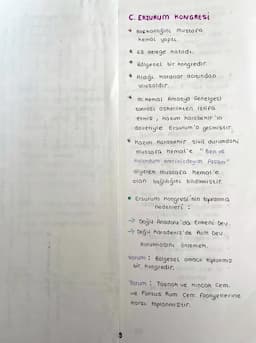 C. ERZURUM KONGRESİ
* Başkanlığını Mustafa
Kemal yaptı.
* 63 delege katıldı.
* Bölgesel bir kongredir.
* Aldığı kararlar açısından
ulusaldır.
* M. Kemal Amasya Genelgesi
sonrası askerlikten istifa
etmiş, Kazım Karabekir'in
davetiyle Erzurum'a geçmiştir.
* Kazım Karabekir sivil durumdaki
Mustafa Kemal'e "Ben ve
Kolordum emrinizdeyim Paşam"
diyerek Mustafa Kemal'e
olan bağlılığını bildirmiştir.
* Erzurum Kongresi'nin toplanma
nedenleri :
→ Doğu Anadolu'da Ermeni Dev.
→ Doğu Karadeniz'de Rum Dev.
kurulmasını önlemek.
Yorum : Bölgesel amaçlı toplanmış
bir kongredir.
Yorum : Taşnak ve Hınçak Cem.
ve Pontus Rum Cem. faaliyetlerine
karşı toplanmıştır.